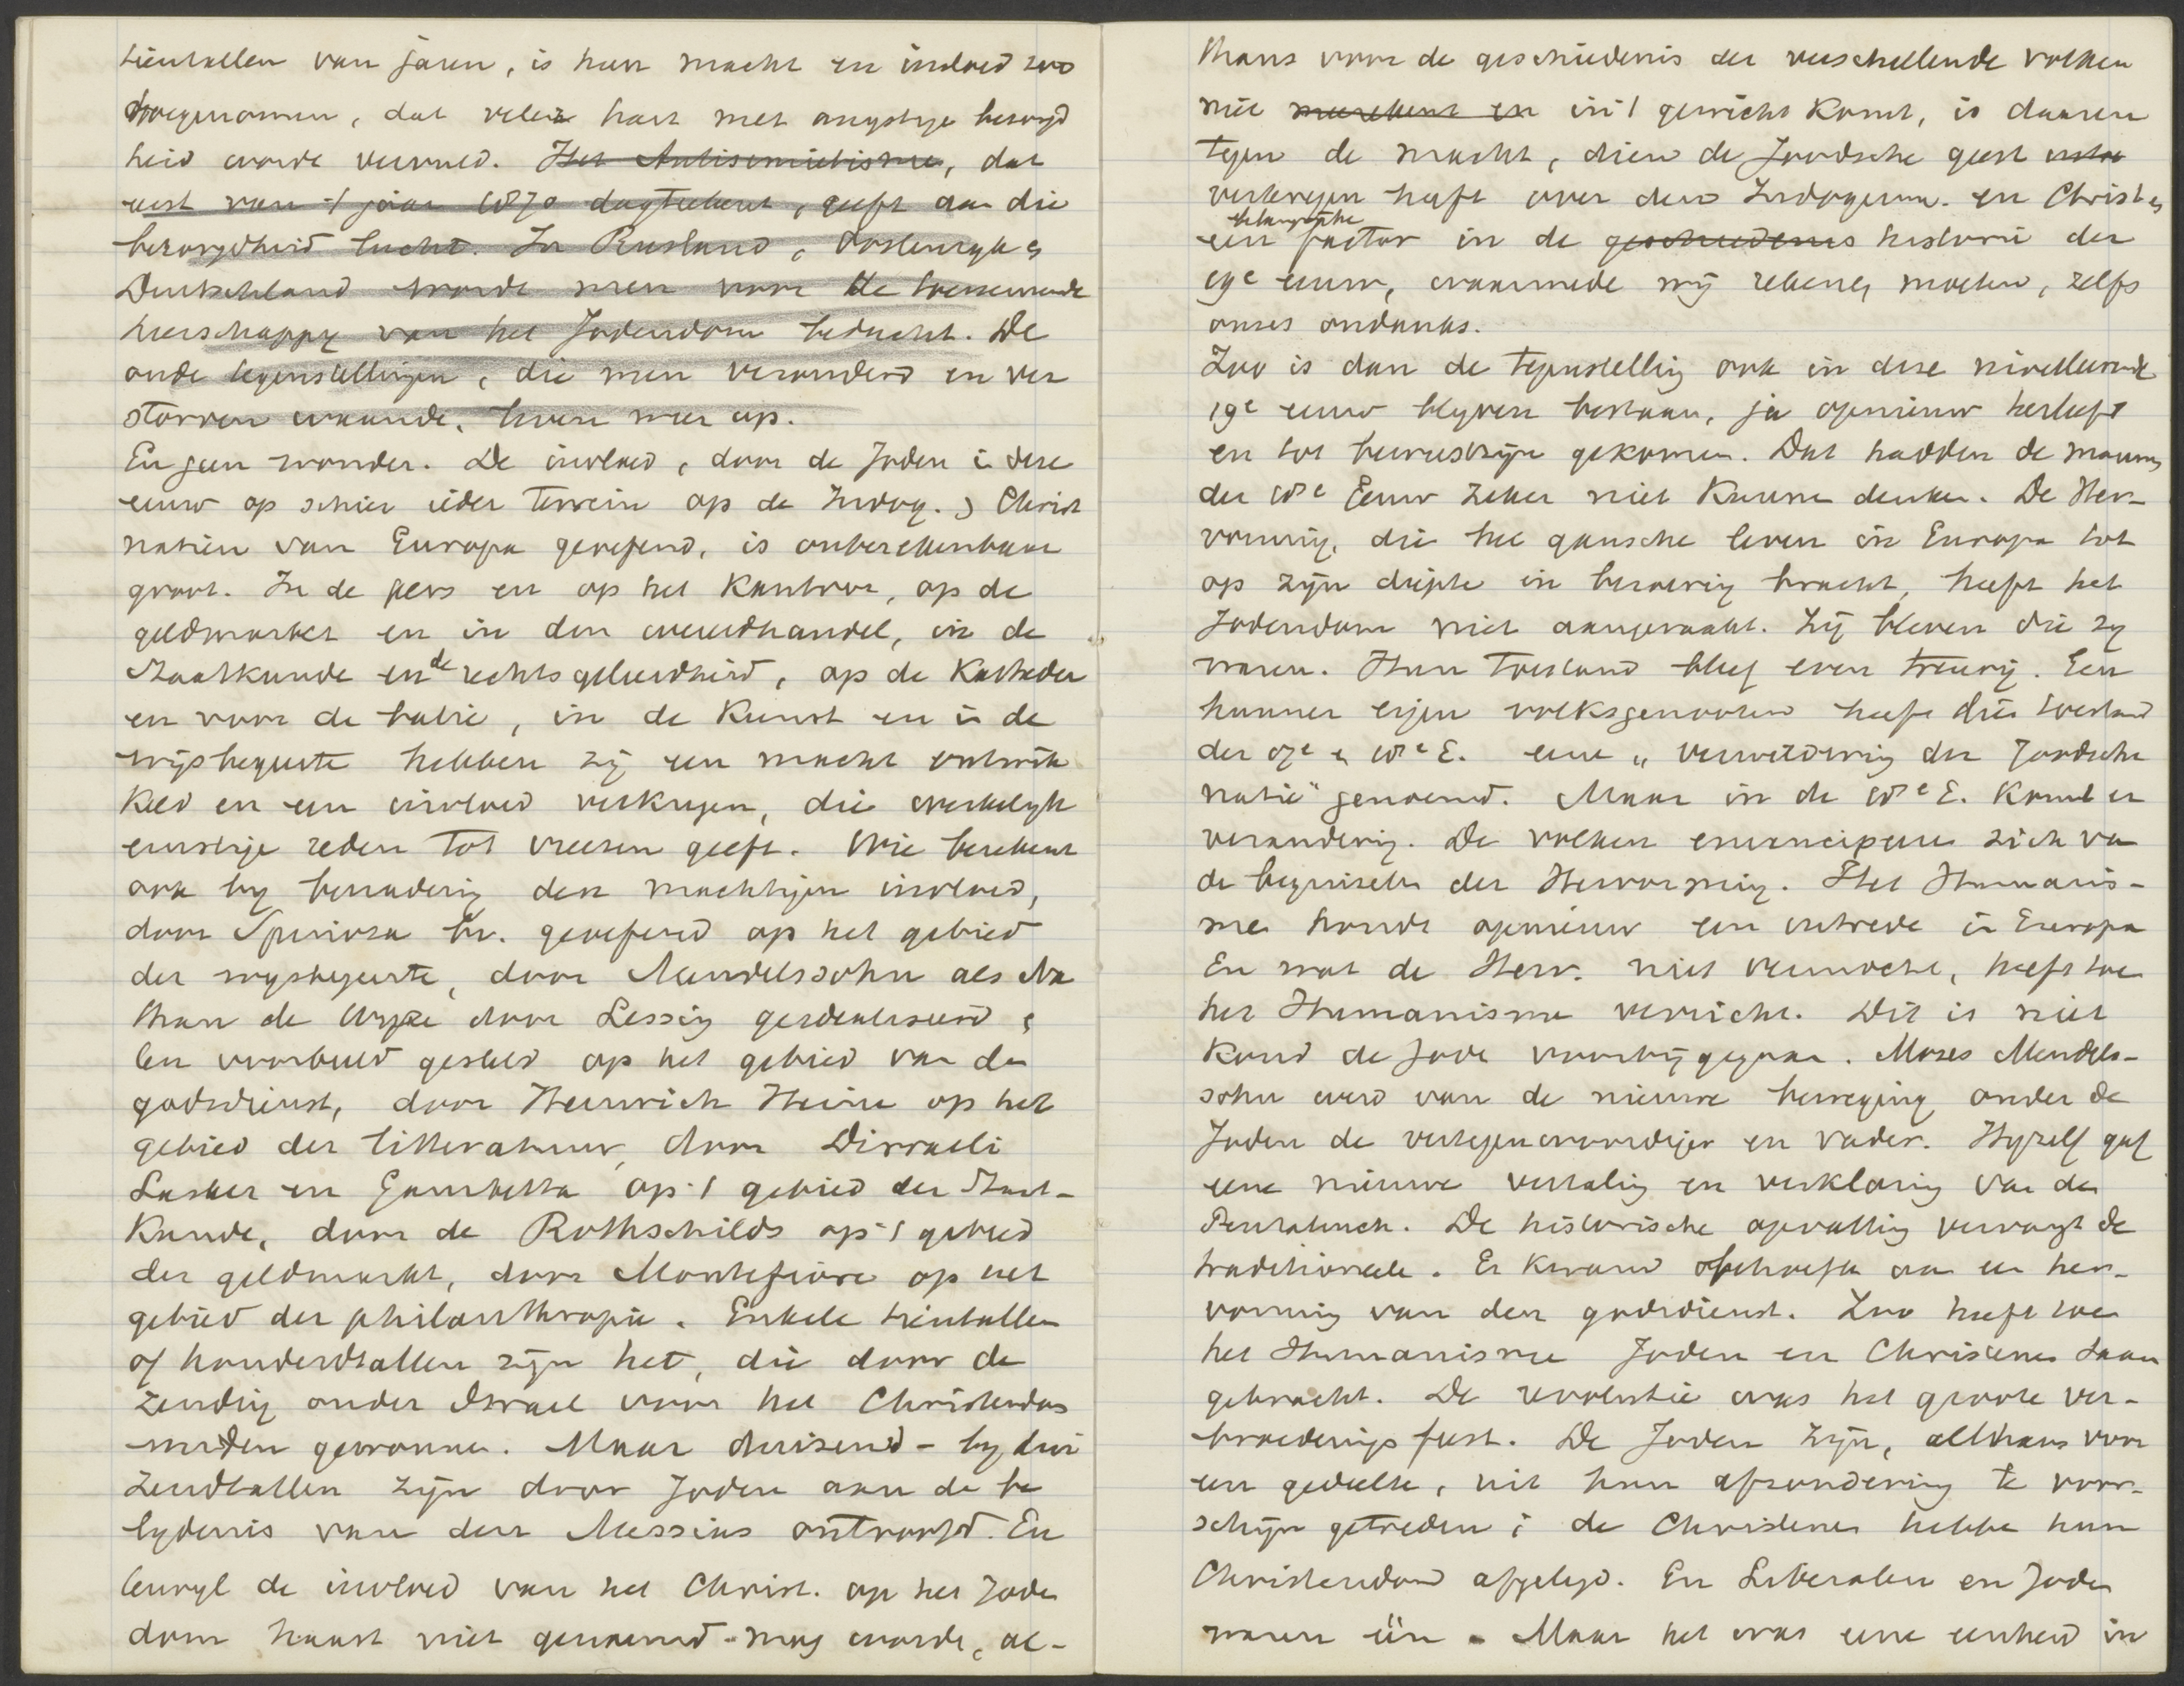 tientallen van jaren, is hun macht en invloed zoo
toegenomen, dat veler hart met angstige bezorgd
heid wordt vervuld. Het Antisemietisme, dat
eerst van 't jaar 1870 dagteekent, geeft aan die
bezorgdheid lucht. In Rusland, Oostenryk en
Duitschland wordt men voor de toenemende
heerschappy van het Jodendom beducht. De
oude tegenstellingen, die men verouderd en ver
storven waande, leven weer op.
En geen wonder. De invloed, door de Joden in deze
eeuw op schier ieder terrein op de Indog. en Christ
natiën van Europa geoefend, is onberekenbaar
groot. In de pers en op het Kantoor, op de
geldmarkt en in den wereldhandel, in de
Staatkunde en de rechtsgeleerdheid, op de Katheder
en voor de balie, in de Kunst en in de
wijsbegeerte hebben zij een macht ontwik
keld en een invloed verkregen, die werkelyk
ernstige reden tot vreezen geeft. Wie berekent
ook by benadering den machtigen invloed,
door Spinoza bv. geoefend op het gebied
der wysbegeerte, door Mendelssohn als Na
than de Wyze door Lessing geidealiseerd en
ten voorbeeld gesteld op het gebied van den
godsdienst, door Heinrich Heine op het
gebied der litteratuur, door Disraeli
Lasker en Gambetta op 't gebied der Staat-
Kunde, door de Rothschilds op 't gebied
der geldmarkt, door Montefiore op het
gebied der philanthropie. Enkele tientallen
of honderdtallen zijn het, die door de
zending onder Israel voor het Christendom
werden gewonnen. Maar duizend- by dui
zendtallen zijn door Joden aan de be
lydenis van den Messias ontroofd. En
terwyl de invloed van het Christ. op het Joden
dom haast niet genoemd mag worden, al-
thans voor de geschiedenis der verschillende volken
niet meerekent en in 't gewicht komt, is daaren
tegen de macht, dien de Joodsche geest
verkregen heeft over den Indogerm. en Christen
een belangrijke factor in de geschiedenis historie der
19e eeuw, waarmede wij rekenen moeten, zelfs
onzes ondanks.
Zoo is dan de tegenstelling ook in deze nivelleerende
19e eeuw blyven bestaan, ja opnieuw herleefd
en tot bewustzijn gekomen. Dat hadden de mannen
der 18e Eeuw zeker niet Kunnen denken. De Her-
vorming, die het gansche leven in Europa tot
op zijn diepte in beroering bracht, heeft het
Jodendom niet aangeraakt. Zij bleven die zy
waren. Hun toestand bleef even treurig. Een
hunner eigen volksgenooten heeft dien toestand
der 17e en 18e E. eene "verwildering der Joodsche
natie" genoemd. Maar in de 18e E. komt er
verandering. De volken emancipeeren zich van
de beginselen der Hervorming. Het Humanis-
me houdt opnieuw een intrede in Europa
En wat de Herv. niet vermocht, heeft toen
het Humanisme verricht. Dit is niet
Koud de Jode voorbijgegaan. Moses Mendels-
sohn werd van de nieuwe beweging onder de
Joden de vertegenwoordiger en vader. Hyzelf gaf
eene nieuwe vertaling en verklaring van den
Pentateuch. De historische opvatting vervangt de
traditioneele. Er kwam behoefte aan een her-
vorming van den godsdienst. Zoo heeft toen
het Humanisme Joden en Christenen saam
gebracht. De revolutie was het groote ver-
broederingsfeest. De Joden zijn, althans voor
een gedeelte, uit hun afzondering te voor-
schijn getreden; de Christenen hebben hun
Christendom afgelegd. En Liberalen en Joden
waren één. Maar het was eene eenheid in